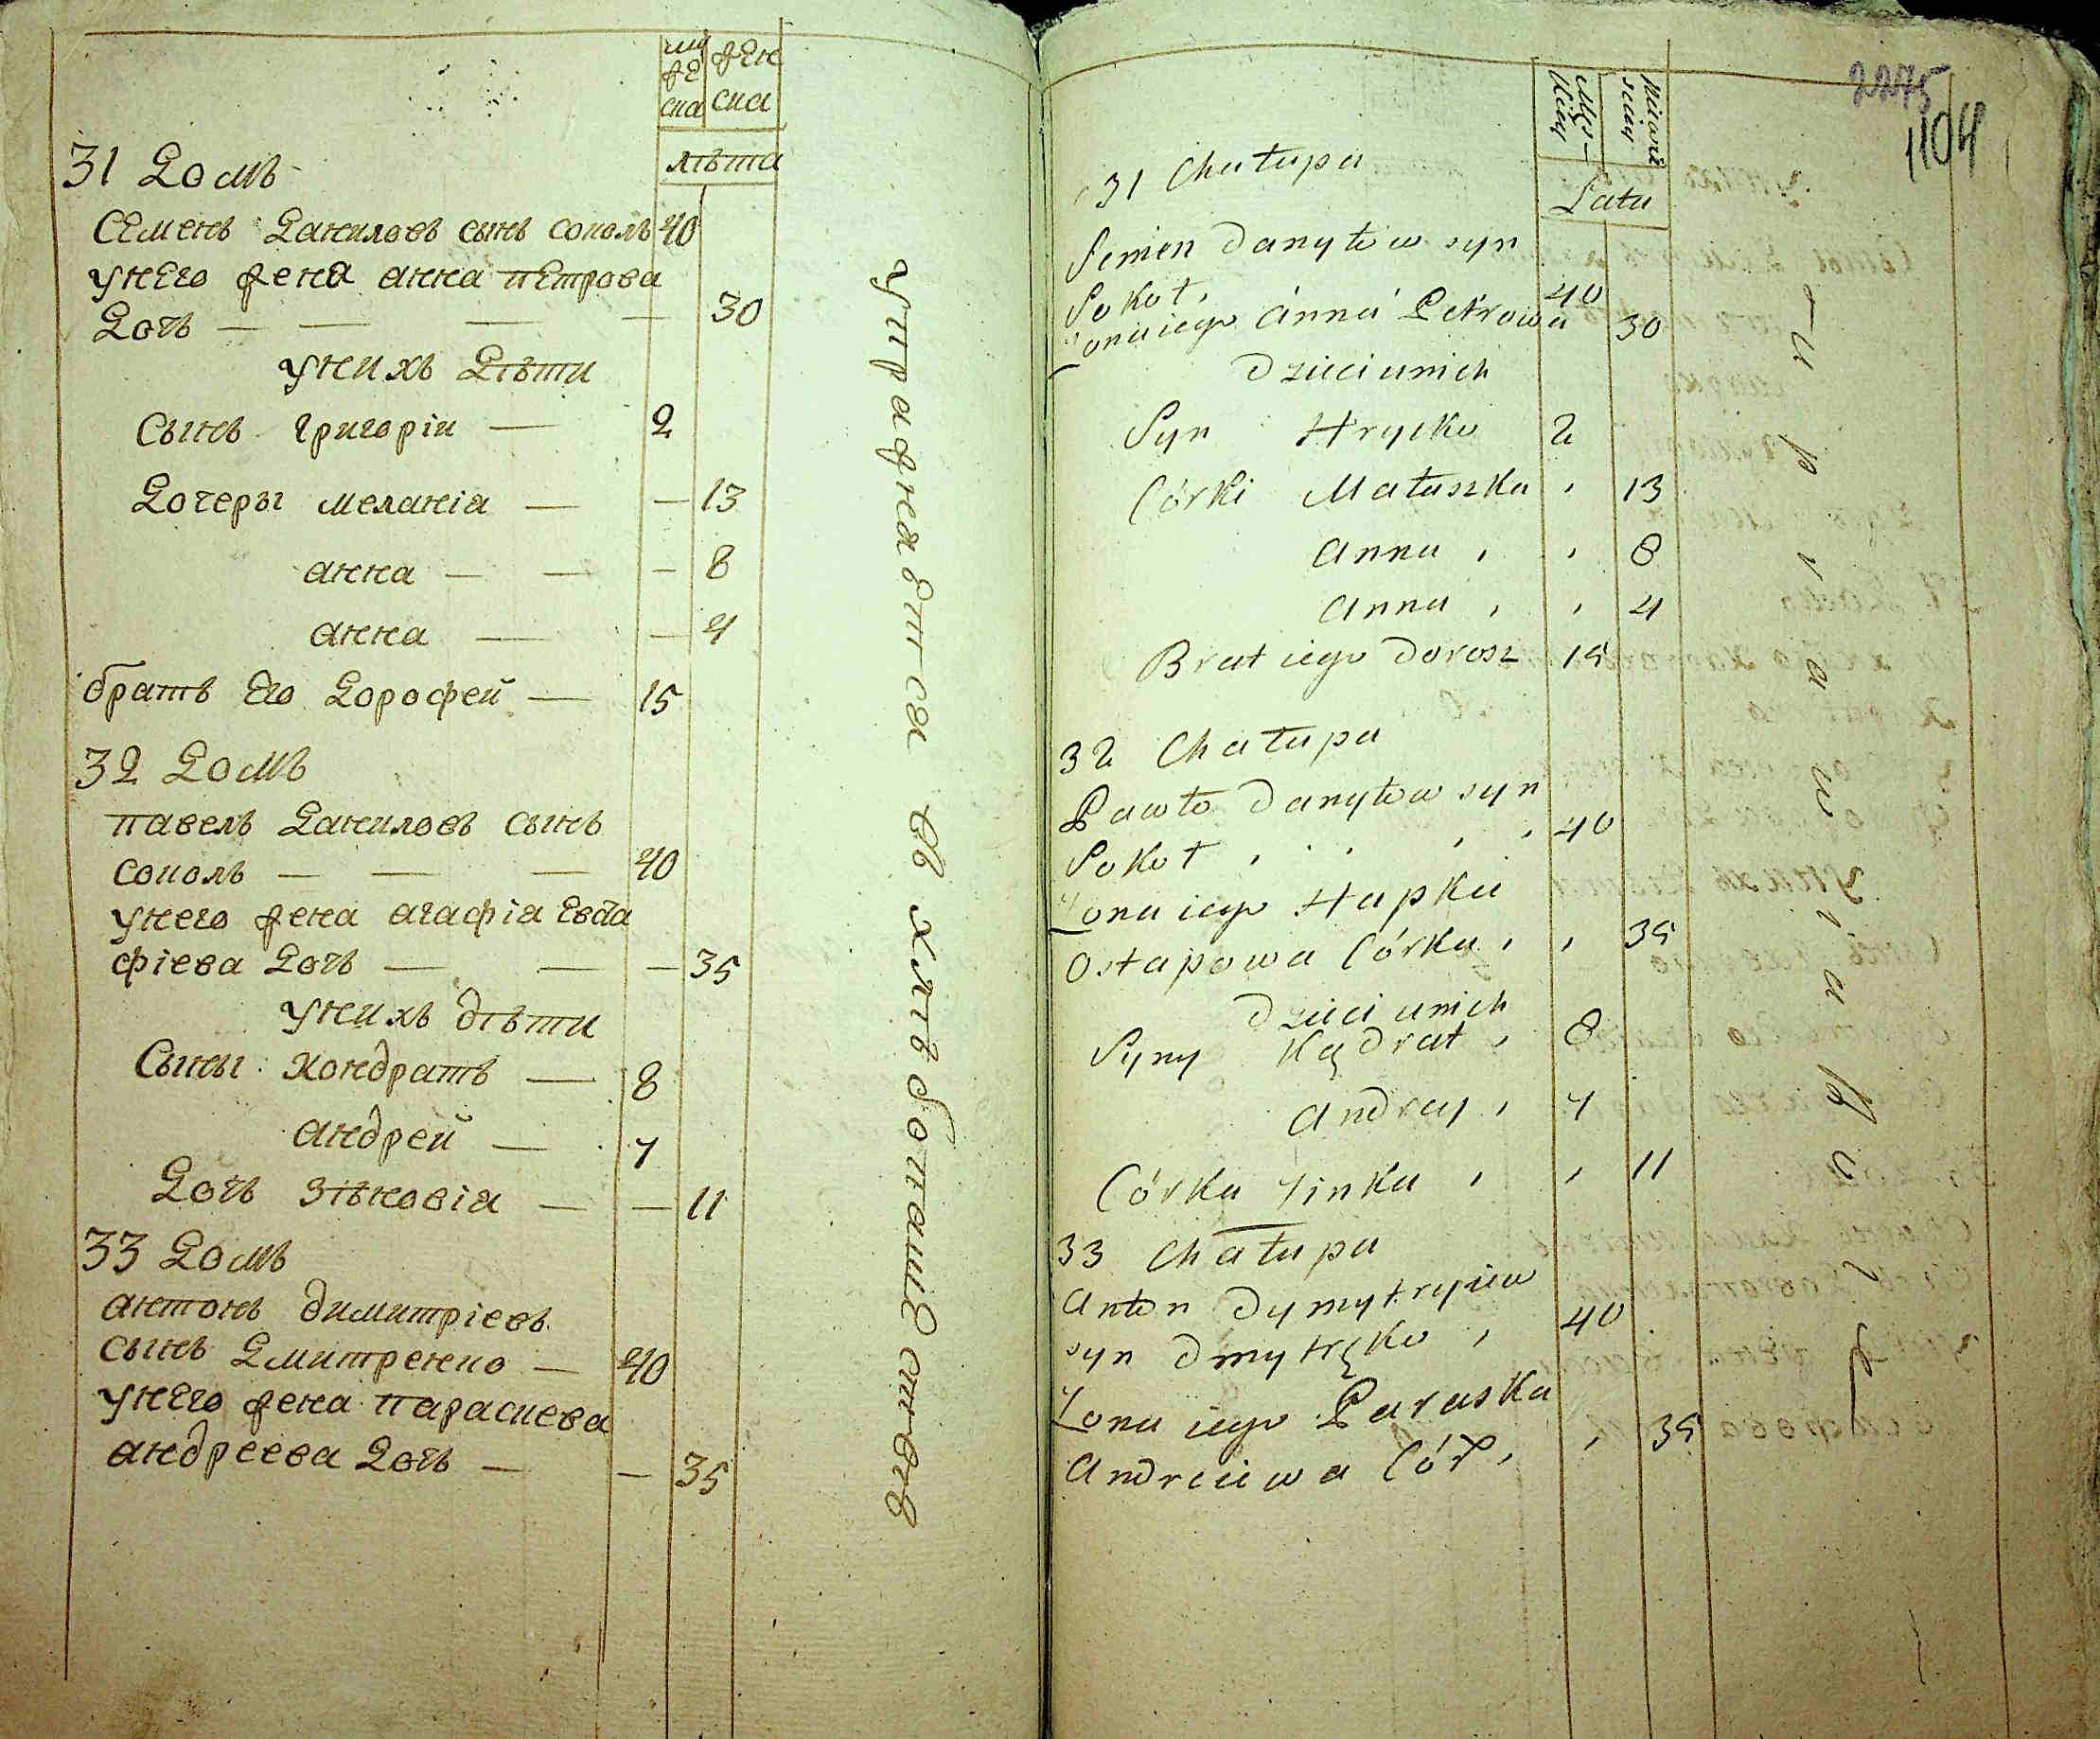 муже ска
жен ска
лѣта
31 Домъ
Семенъ Даниловъ сынъ соколъ 40
унего жена анна петрова
Дочь — — — — 30
унихъ Дѣти
Сынъ григоріи — 2
Дочеры меланіа — — 13
анна — — — 8
анна — — 4
братъ Его Дорофей — 15
32 Домъ
павелъ Даниловъ сынъ
соколъ — — — 40
унего жена агафіа Евста
фіева Дочь — — — 35
унихъ дѣти
Сыны кондратъ — 8
андрей — 7
Дочь зѣновіа — — 11
33 Домъ
антонъ димитріевъ
сынъ Дмитренко — 40
унего жена параскева
андреева Дочь — — 35
упражняется въ хлѣбопашествѣ
2275
1104
Męs-kiey
Latu
31 Chałupa
Semen Danyłow syn
Sokoł, 40
Żona iego Anna Petrowa 30
Dzieci unich
Syn Hryćko 2
Córki Małaszka , 13
Anna , , 8
Anna , , 4
Brat iego Dorosz 15
32 Chałupa
Pawło Danyłow syn
Sokoł , , , , 40
Żona iego Hapka
Ostapowa Córka , , 35
Dzieci unich
Syny Kądrat , 8
Andrey , 7
Córka Zinka , , 11
33 Chałupa
Anton Dymytryiew
syn Dmytręko , 40
Żona iego Paraska
Andreiewa Cór , , 35